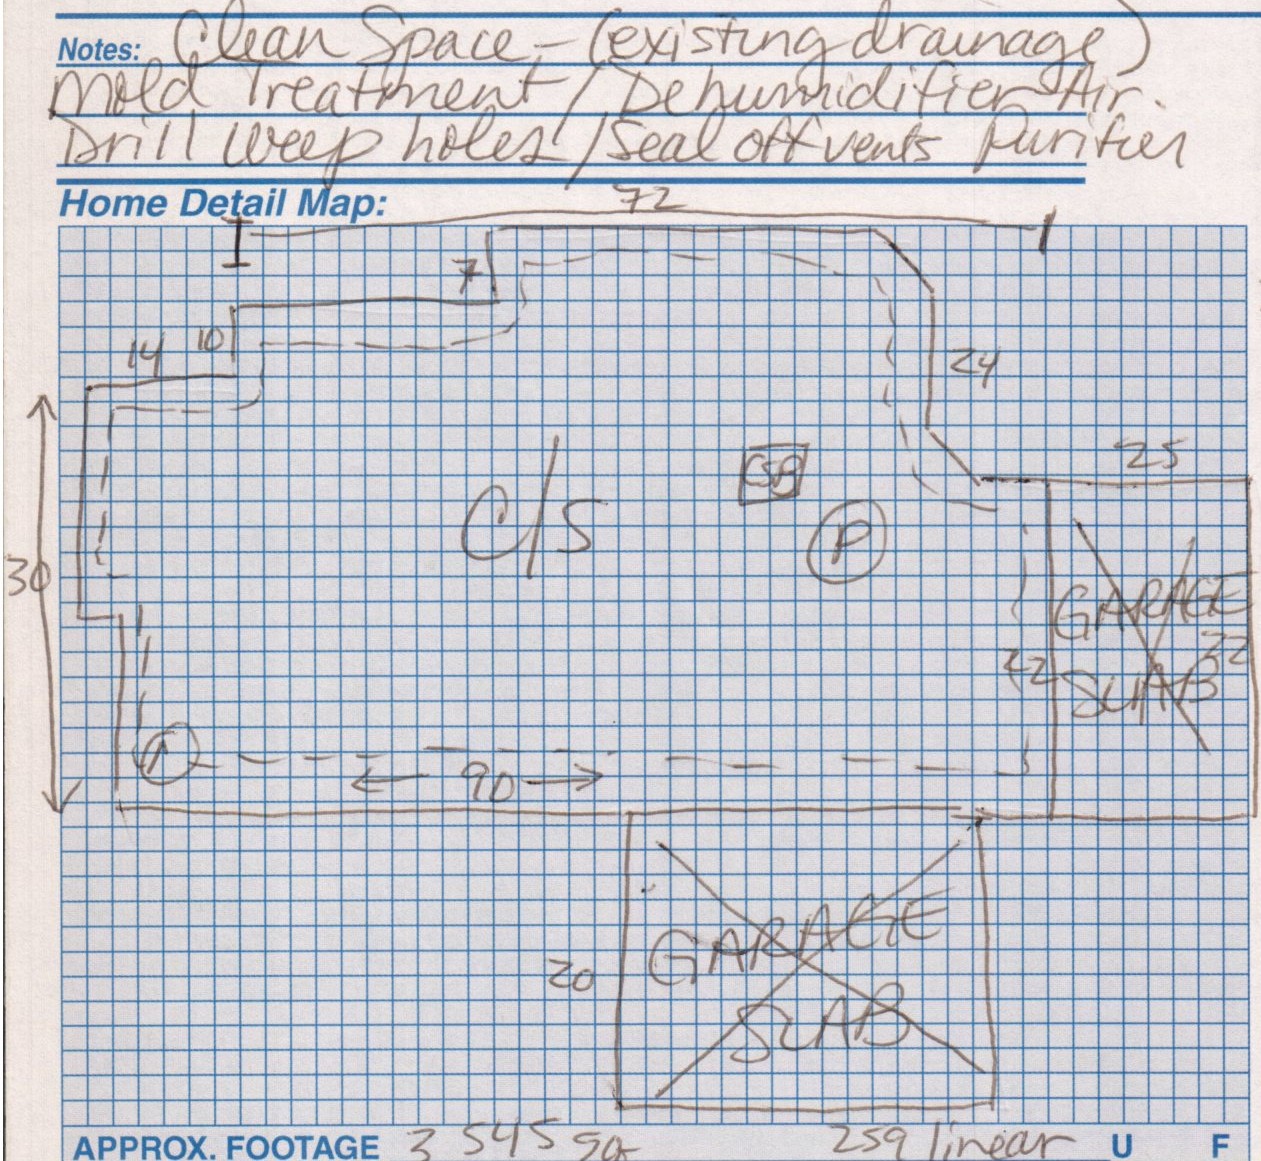 Notes: Clean Space - (existing drainage)
Mold Treatment / Dehumidifier Air.
Drill weep holes / Seal off vents Purifier
Home Detail Map:
72
7
10
14
24
25
30
C/S
CSB
P
GARAGE
22
22
SLAB
90
GARAGE
20
SLAB
APPROX. FOOTAGE 3545 sq 259 linear U F